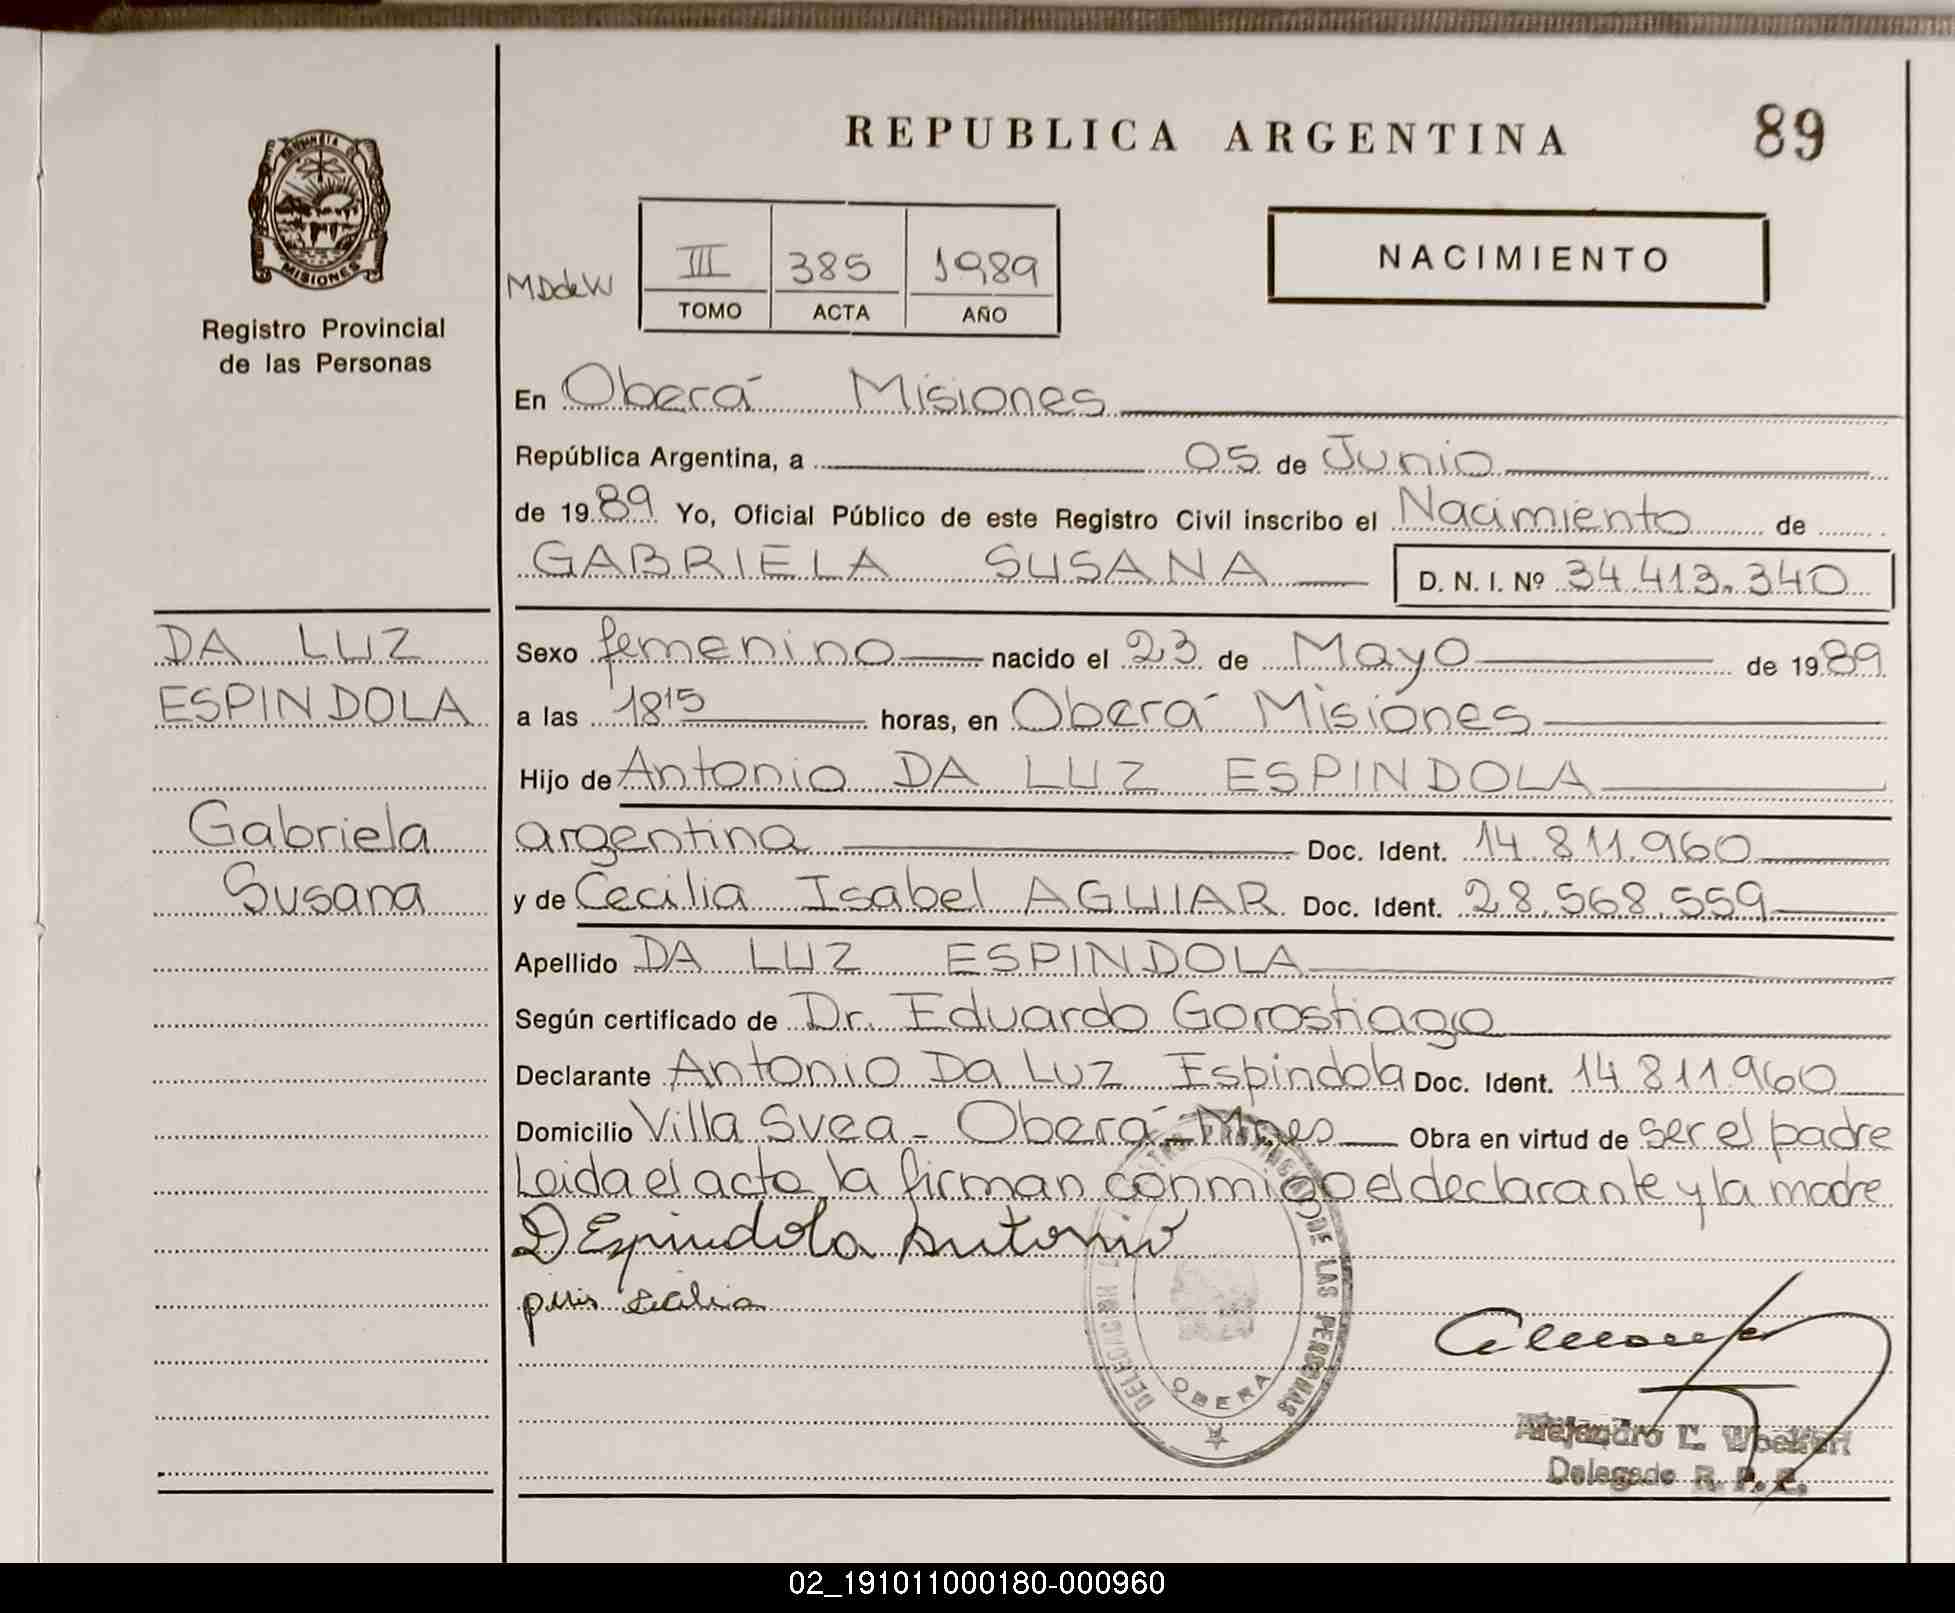 REPUBLICA ARGENTINA
89
MISIONES
Registro Provincial
de las Personas
MDdeW
III 385 1989
TOMO ACTA AÑO
NACIMIENTO
En Oberá Misiones
República Argentina, a 05 de Junio
de 1989 Yo, Oficial Público de este Registro Civil inscribo el Nacimiento de
GABRIELA SUSANA D. N. I. Nº 34.413.340
DA LUZ
ESPINDOLA
Gabriela
Susana
Sexo femenino nacido el 23 de Mayo de 1989
a las 18¹⁵ horas, en Oberá Misiones
Hijo de Antonio DA LUZ ESPINDOLA
argentina Doc. Ident. 14.811.960
y de Cecilia Isabel AGUIAR Doc. Ident. 28.568.559
Apellido DA LUZ ESPINDOLA
Según certificado de Dr. Eduardo Gorostiago
Declarante Antonio Da Luz Espindola Doc. Ident. 14.811.960
Domicilio Villa Svea - Oberá - Mnes Obra en virtud de ser el padre
Leida el acta la firman conmigo el declarante y la madre
D Espindola Antonio
DE LAS PERSONAS
OBERA
Alejandro L. Woelfert
Delegado R. P. P.
02_191011000180-000960